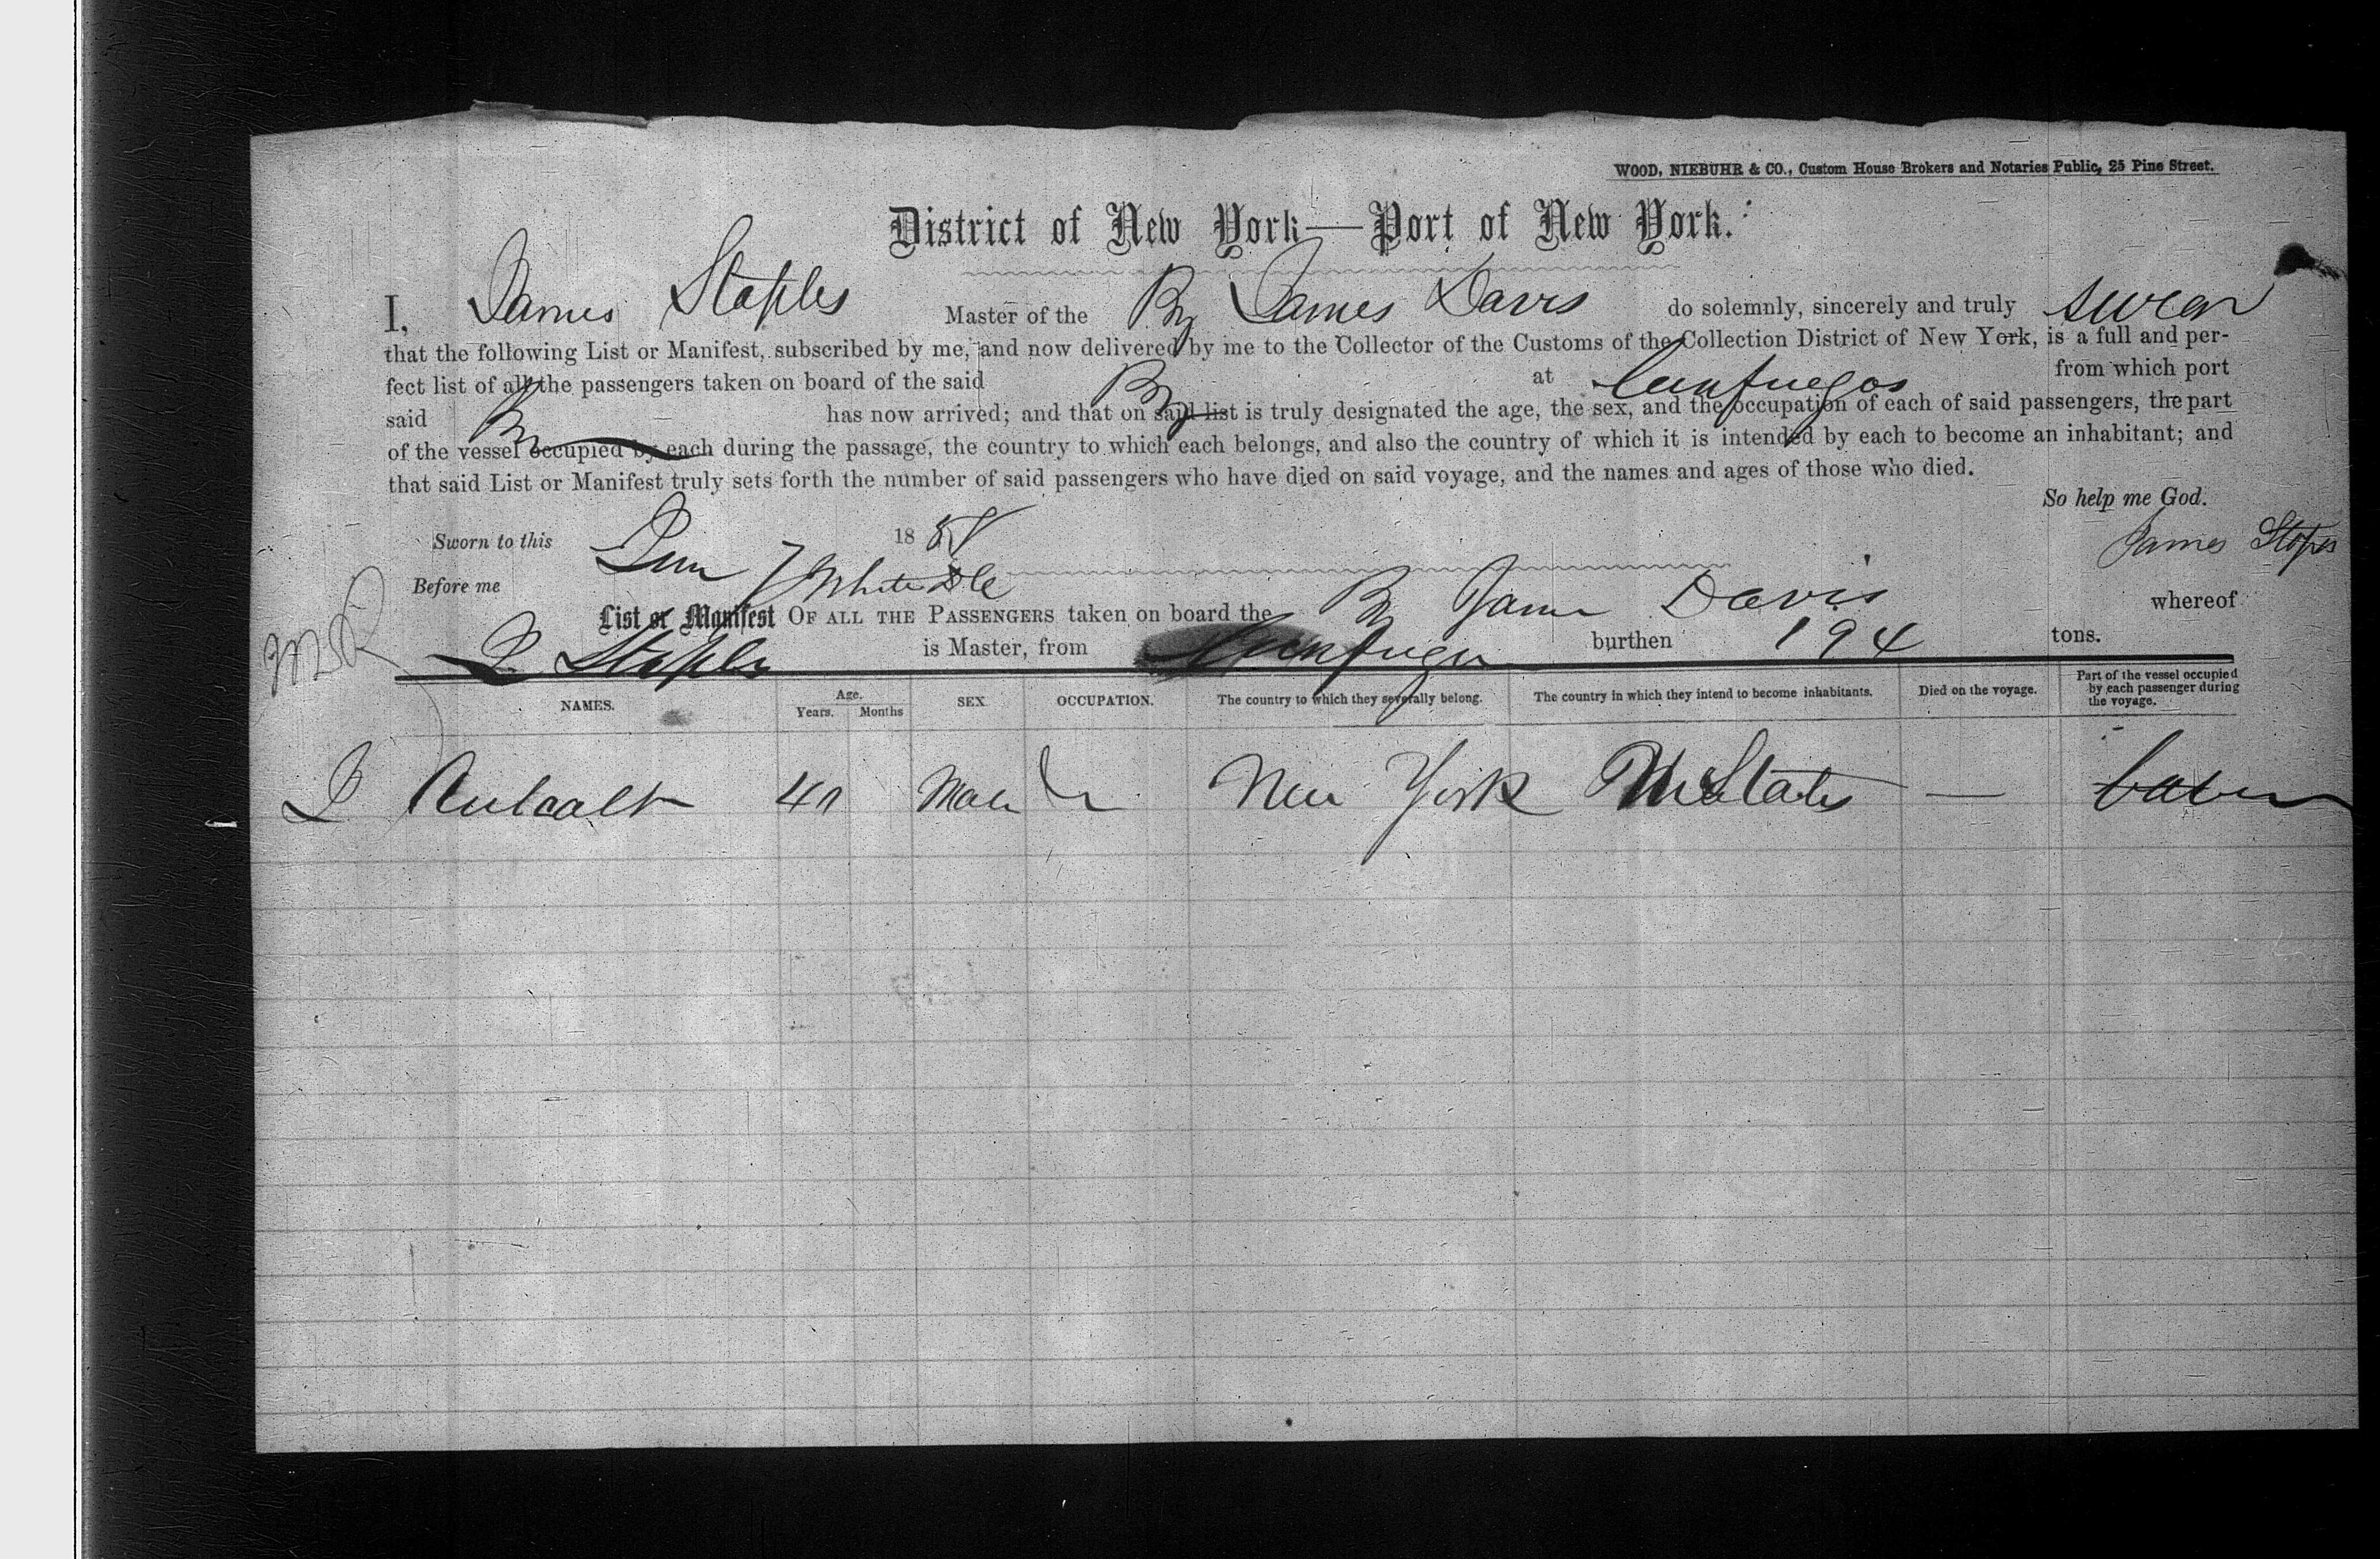 WOOD, NIEBUHR & CO., Custom House Brokers and Notaries Public, 25 Pine Street.
District of New York—Port of New York.
I, James Staples Master of the Bg James Davis do solemnly, sincerely and truly swear
that the following List or Manifest, subscribed by me, and now delivered by me to the Collector of the Customs of the Collection District of New York, is a full and per-
fect list of all the passengers taken on board of the said Bg at Cienfuegos from which port
said Bg has now arrived; and that on said list is truly designated the age, the sex, and the occupation of each of said passengers, the part
of the vessel occupied by each during the passage, the country to which each belongs, and also the country of which it is intended by each to become an inhabitant; and
that said List or Manifest truly sets forth the number of said passengers who have died on said voyage, and the names and ages of those who died.
So help me God.
Sworn to this 18 James
Before me
List or Manifest OF ALL THE PASSENGERS taken on board the Bg James Davis whereof
J Staples is Master, from burthen 194 tons.
NAMES. Age. Years. Months SEX. OCCUPATION. The country to which they severally belong. The country in which they intend to become inhabitants. Died on the voyage. Part of the vessel occupied by each passenger during the voyage.
New York States —